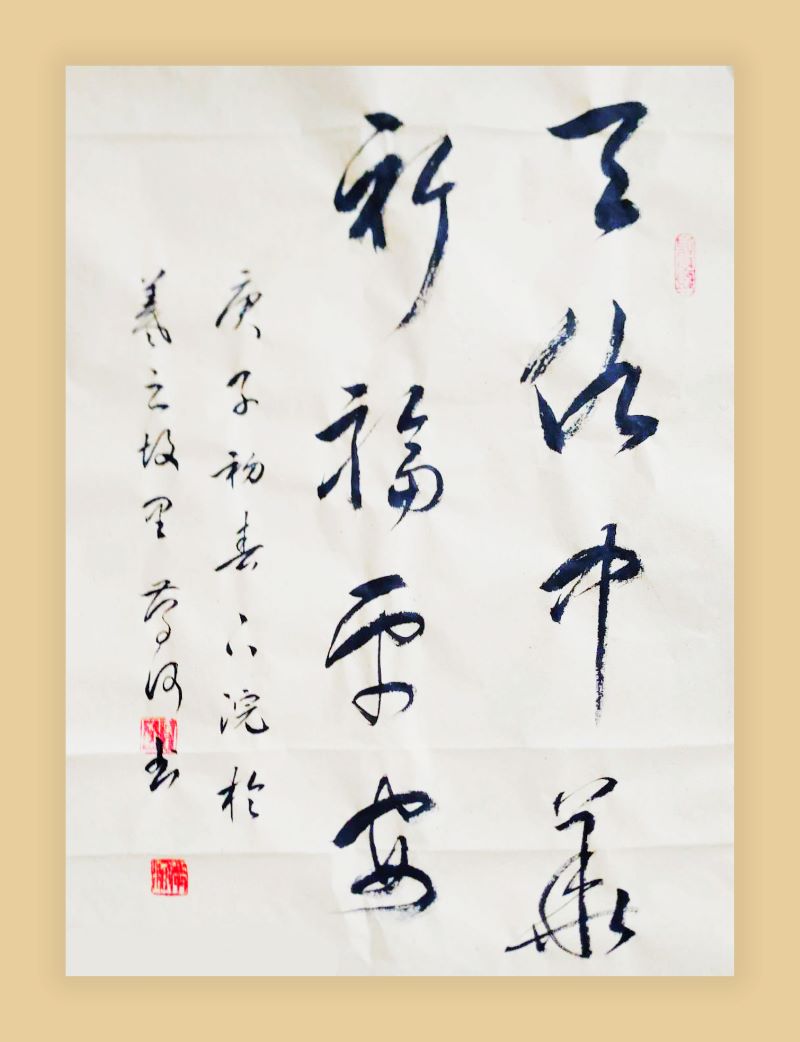 天佑中華
祈福平安
庚子初春下浣於
羲之故里 書